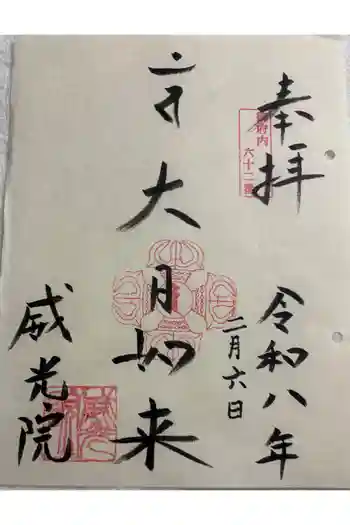 奉拝
御府内
六十二番
令和八年
二月六日
大日如来
威光院